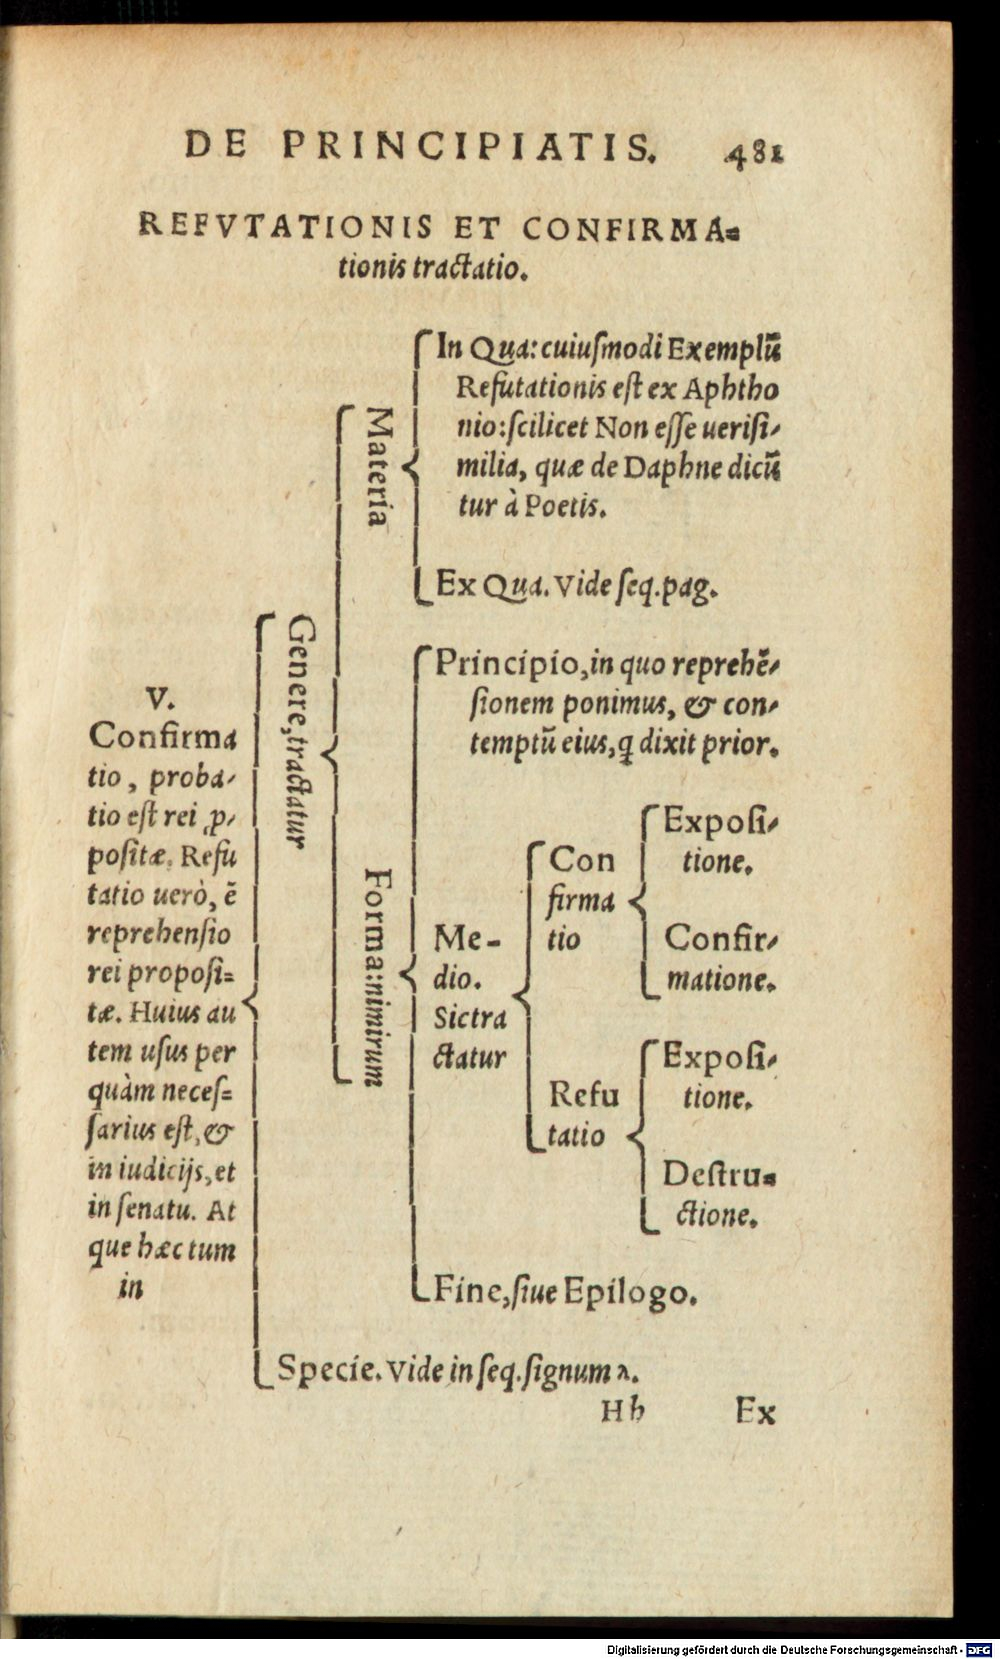 DE PRINCIPIATIS. 481
REFVTATIONIS ET CONFIRMA=
tionis tractatio.
V.
Confirma
tio, proba-
tio est rei ꝓ-
positæ. Refu
tatio uerò, ē
reprehensio
rei proposi=
tæ. Huius au
tem usus per
quàm neces=
sarius est, &
in iudicijs, et
in senatu. At
que hæc tum
in
Genere, tractatur
Materia
In Qua: cuiusmodi Exemplū
Refutationis est ex Aphtho
nio: scilicet Non esse uerisi-
milia, quæ de Daphne dicū
tur à Poetis.
Ex Qua. Vide seq. pag.
Forma: nimirum
Principio, in quo reprehē-
sionem ponimus, & con-
temptū eius, q dixit prior.
Me-
dio.
Sictra
ctatur
Con
firma
tio
Exposi-
tione.
Confir-
matione.
Refu
tatio
Exposi-
tione.
Destru=
ctione.
Fine, siue Epilogo.
Specie. Vide in seq. signum
Hh Ex
Digitalisierung gefördert durch die Deutsche Forschungsgemeinschaft - DFG